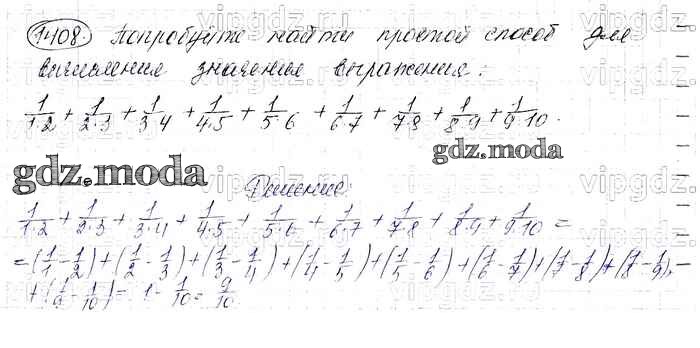 1408. Попробуйте найти простой способ для
вычисления значения выражения:
1/1·2 + 1/2·3 + 1/3·4 + 1/4·5 + 1/5·6 + 1/6·7 + 1/7·8 + 1/8·9 + 1/9·10.
gdz.moda
gdz.moda
Решение:
1/1·2 + 1/2·3 + 1/3·4 + 1/4·5 + 1/5·6 + 1/6·7 + 1/7·8 + 1/8·9 + 1/9·10 =
= (1/1 - 1/2) + (1/2 - 1/3) + (1/3 - 1/4) + (1/4 - 1/5) + (1/5 - 1/6) + (1/6 - 1/7) + (1/7 - 1/8) + (1/8 - 1/9) +
+ (1/9 - 1/10) = 1 - 1/10 = 9/10.
vipgdz.ru